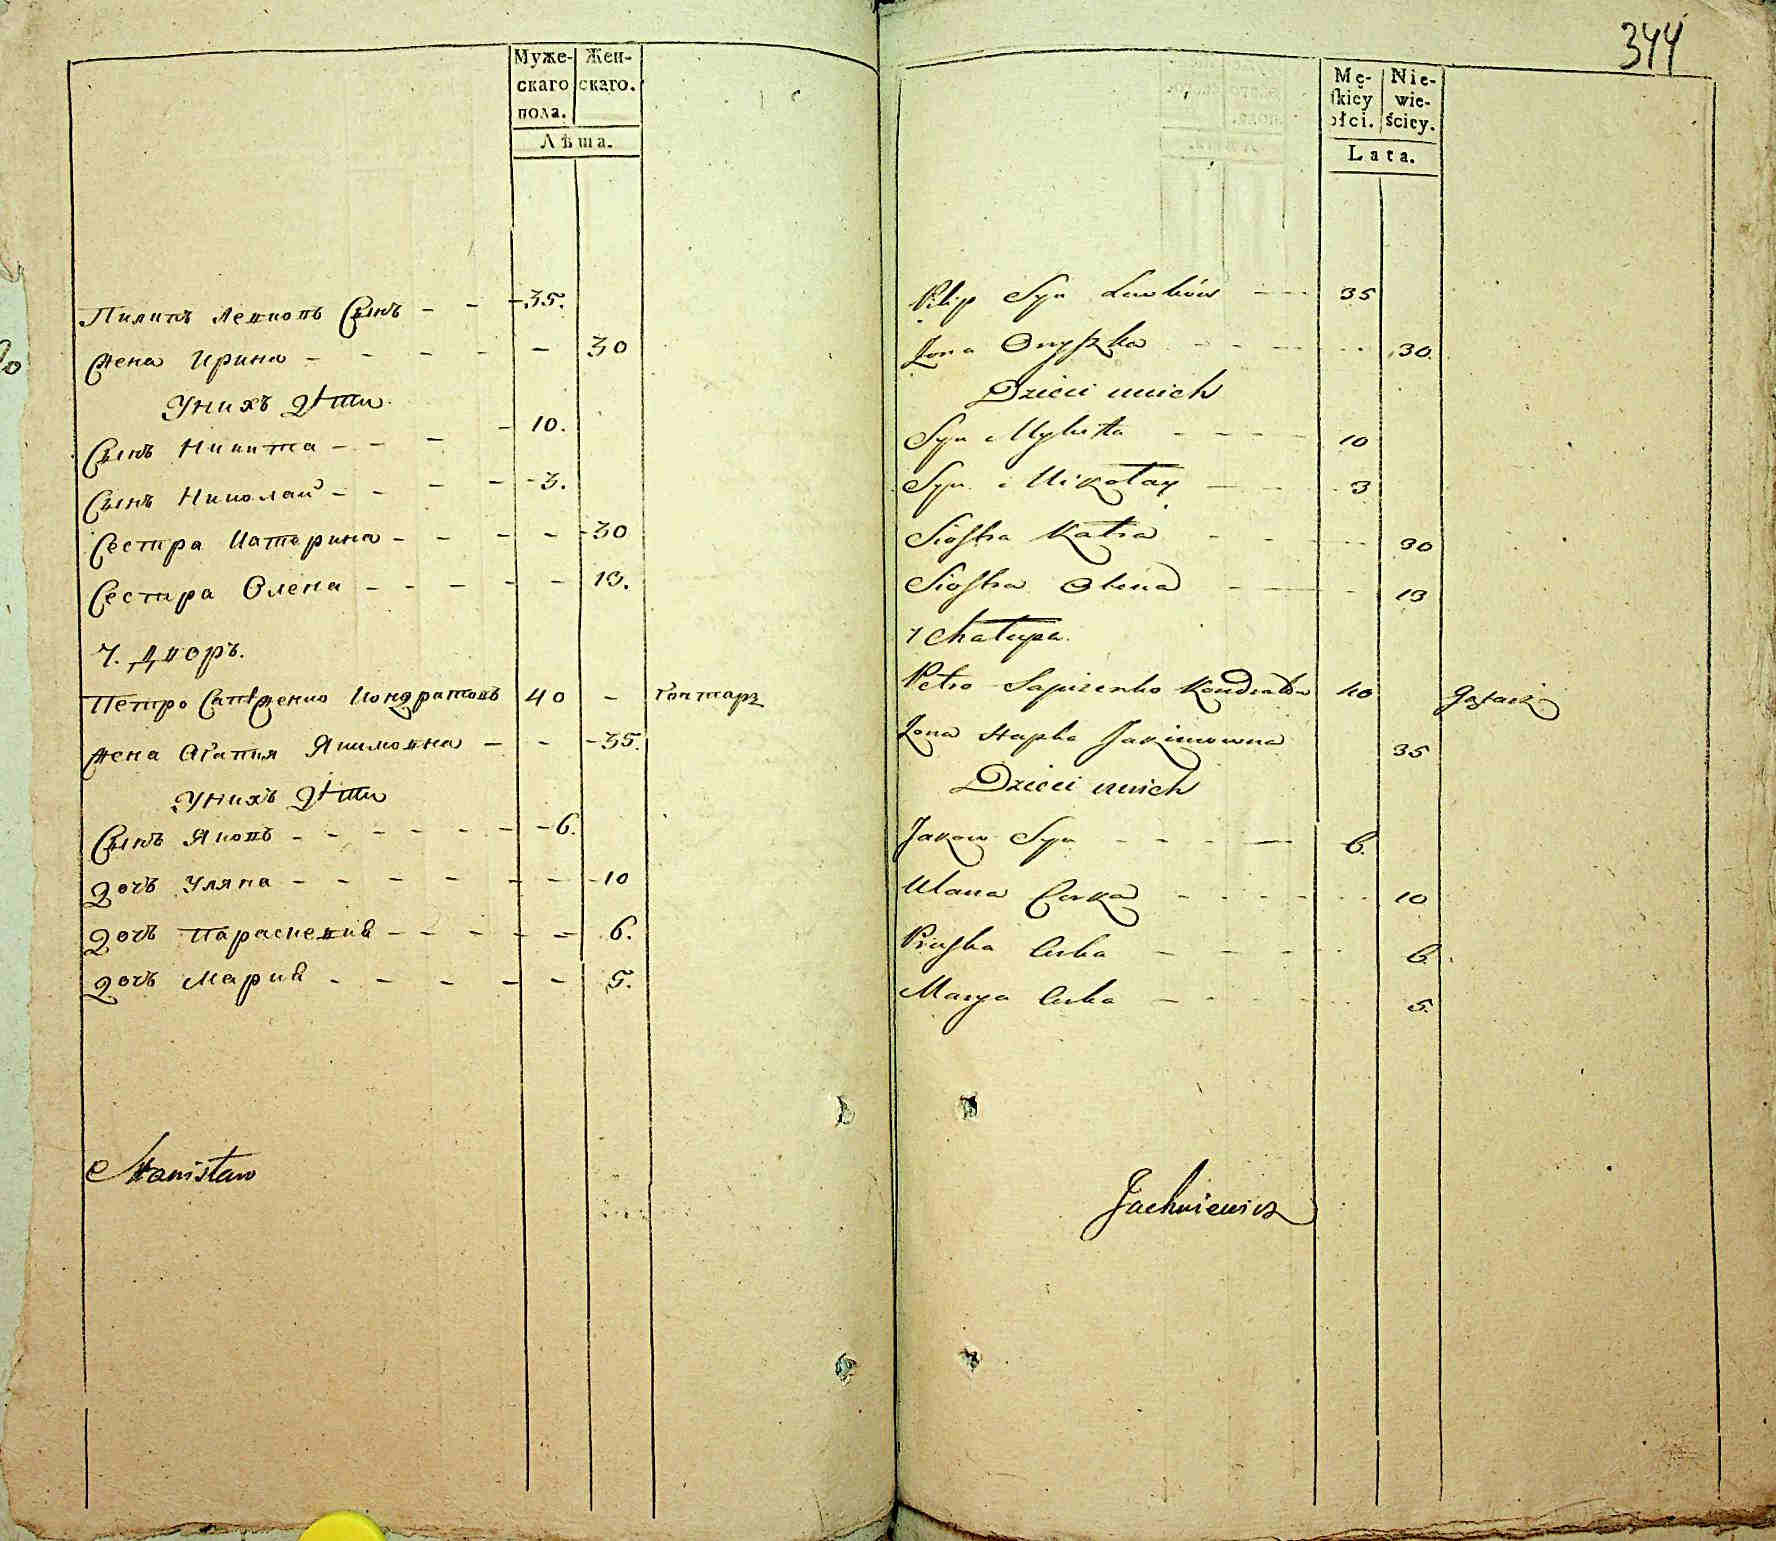 Муже- Жен-
скаго скаго.
пола.
Лѣта.
Пилипъ Левковъ Сынъ - - - 35.
Жена Ирина - - - - - 30
Унихъ дѣти
Сынъ Никита - - - - 10.
Сынъ Николай - - - - - 3.
Сестра Катерина - - - - - 30
Сестра Олена - - - - - 13.
7. Дворъ.
Петро Сапѣженко Кондратовъ 40 - Гонтарь
Жена Агапия Якимовна - - - 35.
Унихъ дѣти
Сынъ Яковъ - - - - - - - 6.
Дочь Уляна - - - - - - - 10
Дочь Параскевия - - - - - 6.
Дочь Мария - - - - - 5.
Stanisław
344
Mę- Nie-
skiey wie-
płci. ściey.
Lata.
Pilip Syn Lewków - - - 35
Zona Oryszka - - - - - - 30.
Dzieci unich
Syn Mykitta - - - - 10
Syn Mikołay - - - 3
Siostra Katra - - - - - 30
Siostra Olena - - - 13
7 Chałupa.
Petro Sapizenko Kondratow 40
Zona Hapka Jakimowna 35
Dzieci unich
Jakow Syn - - - - - 6.
Ulana Corka - - - - - - 10
Corka - - - - - 6.
Marya Corka - - - - - - 5.
Jachniewicz